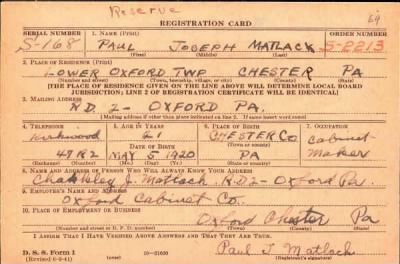 Reserve
REGISTRATION CARD
SERIAL NUMBER 1. NAME (Print) ORDER NUMBER
S-168 PAUL JOSEPH MATLACK S-2213
(First) (Middle) (Last)
2. PLACE OF RESIDENCE (Print)
LOWER OXFORD TWP CHESTER PA
(Number and street) (Town, township, village, or city) (County) (State)
[THE PLACE OF RESIDENCE GIVEN ON THE LINE ABOVE WILL DETERMINE LOCAL BOARD
JURISDICTION; LINE 2 OF REGISTRATION CERTIFICATE WILL BE IDENTICAL]
3. MAILING ADDRESS
R.D. 2- OXFORD PA.
[Mailing address if other than place indicated on line 2. If same insert word same]
4. TELEPHONE 5. AGE IN YEARS 6. PLACE OF BIRTH 7. OCCUPATION
Kirkwood 21 CHESTER CO Cabinet
DATE OF BIRTH
48R2 MAY 5 1920 PA Maker
(Exchange) (Number) (Mo.) (Day) (Yr.) (State or country)
8. NAME AND ADDRESS OF PERSON WHO WILL ALWAYS KNOW YOUR ADDRESS
Chalkley J. Matlack R.D 2- Oxford Pa.
9. EMPLOYER'S NAME AND ADDRESS
Oxford Cabinet Co.
10. PLACE OF EMPLOYMENT OR BUSINESS
Oxford Chester Pa
(Number and street or R. F. D. number) (Town) (County) (State)
I AFFIRM THAT I HAVE VERIFIED ABOVE ANSWERS AND THAT THEY ARE TRUE.
D. S. S. Form 1
(Revised 6-9-41) 16-21630 Paul J Matlack